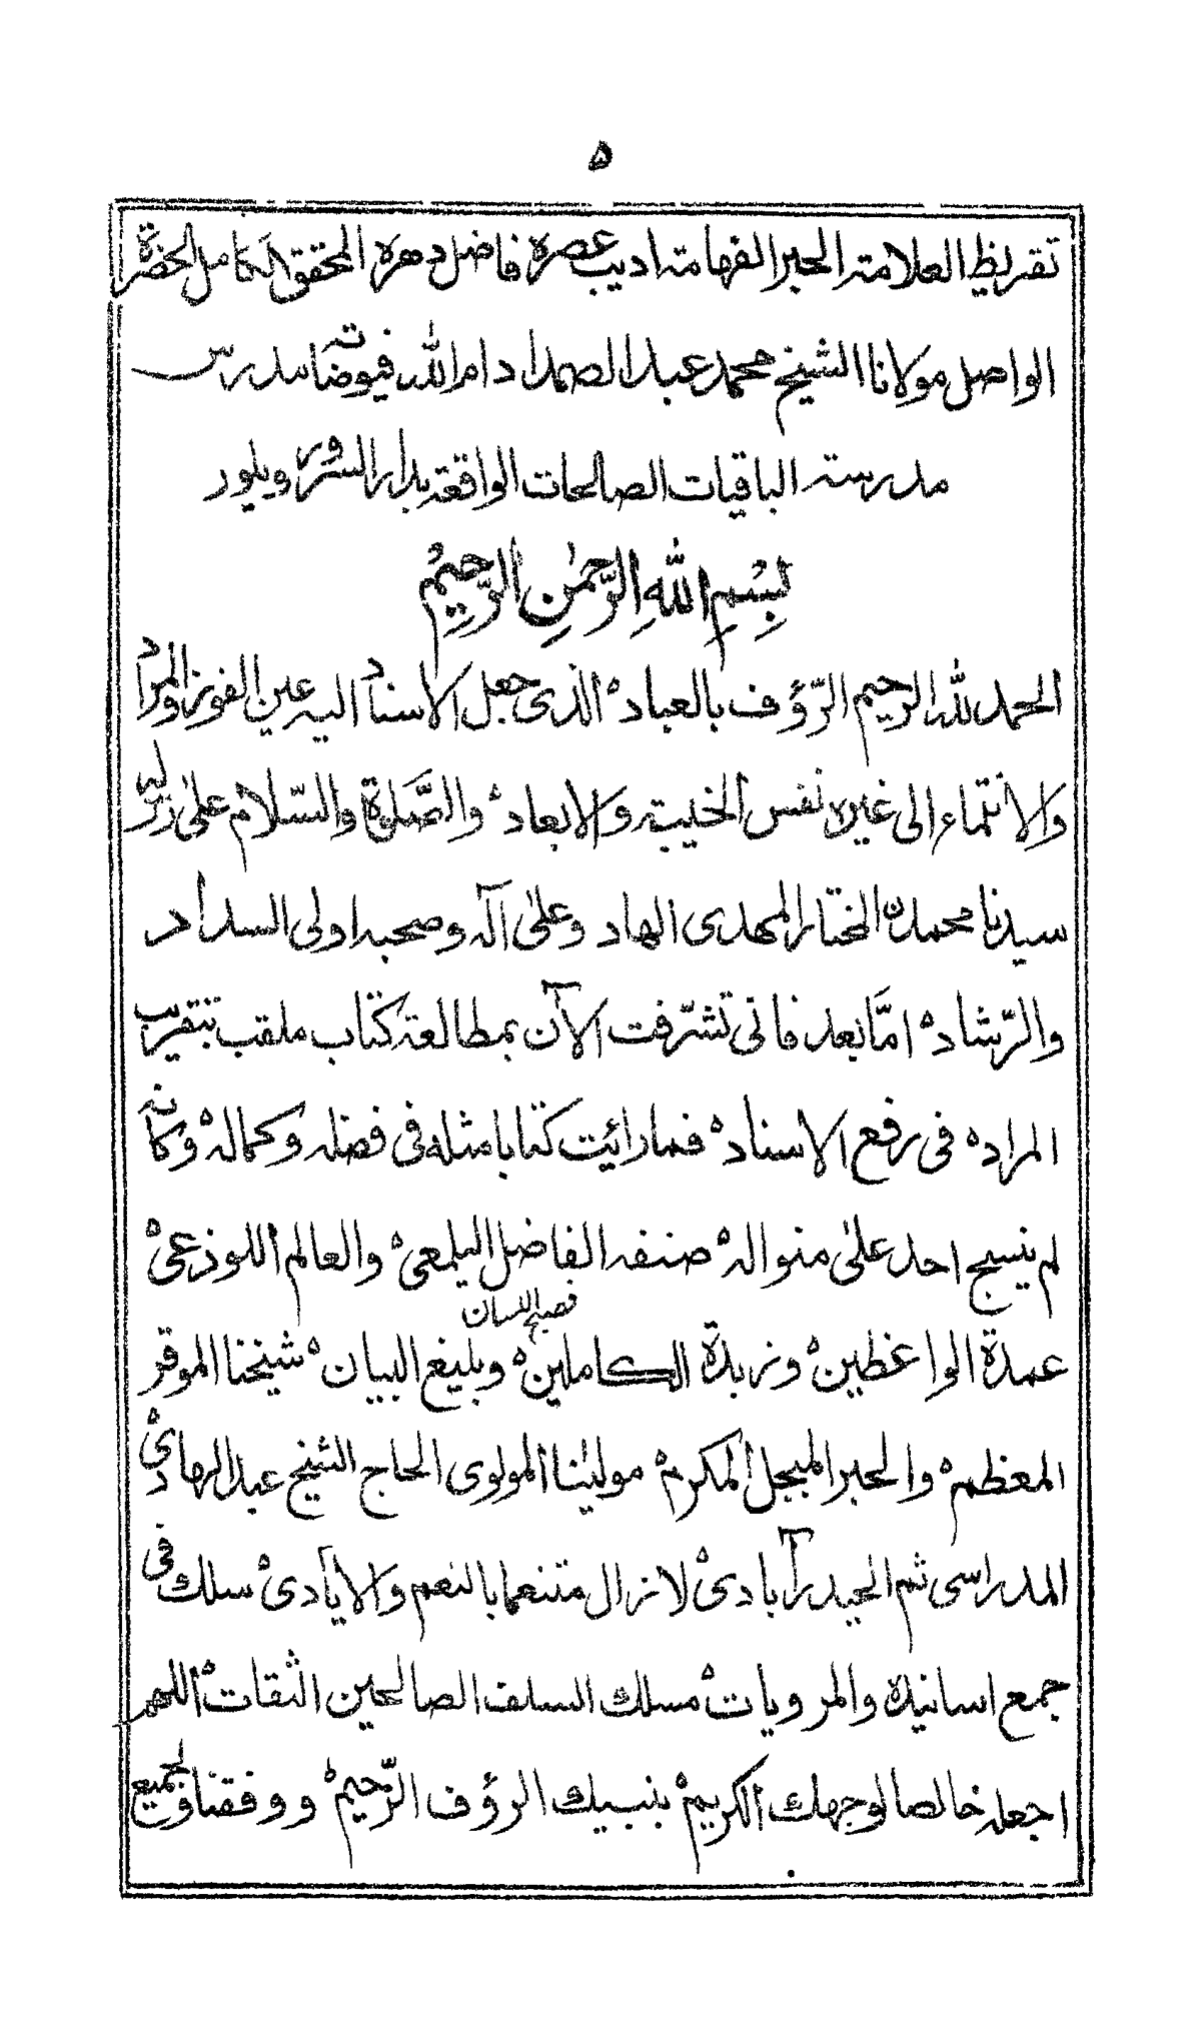 ۵
تقريظ العلامة الحبر الفهامة اديب عصره فاضل دهره المحقق الكامل الحضرة
الواصل مولانا الشيخ محمد عبد الصمد ادام الله فيوضاته مدرس
مدرسة الباقيات الصالحات الواقعة بدار السرور ويلور
بِسْمِ اللهِ الرَّحْمٰنِ الرَّحِيْمِ
الحمد لله الرحيم الرّؤف بالعباد ۵ الذى جعل الاسناد اليه عين الفوز والمراد
والانتماء الى غيره نفس الخيبة والابعاد ۵ والصَّلوة والسّلام علىٰ رسوله
سيدنا محمدن المختار المهدى الهاد وعلىٰ آله وصحبه اولى السداد
والرّشاد ۵ امَّا بعد فانى تشرّفت الآن بمطالعة كتاب ملقب بتقريب
المراد ۵ فى رفع الاسناد ۵ فما رائيت كتابا مثله فى فضله وكماله ۵ وكانه
لم ينسج احد علىٰ منواله ۵ صنفه الفاضل اليلمعى ۵ والعالم اللوذعى ۵
فصيح اللسان
عمدة الواعظين ۵ وزبدة الكاملين ۵ وبليغ البيان ۵ شيخنا الموقر
المعظم ۵ والحبر المبجل المكرم ۵ مولينا المولوى الحاج الشيخ عبد الهادى ۵
المدراسى ثم الحيدرآبادى ۵ لازال متنعما بالنعم والايادى ۵ سلك فى
جمع اسانيده والمرويات ۵ مسلك السلف الصالحين الثقات ۵ اللهم
اجعله خالصا لوجهك الكريم ۵ بنبيك الرؤف الرّحيم ۵ ووفقنا وجميع